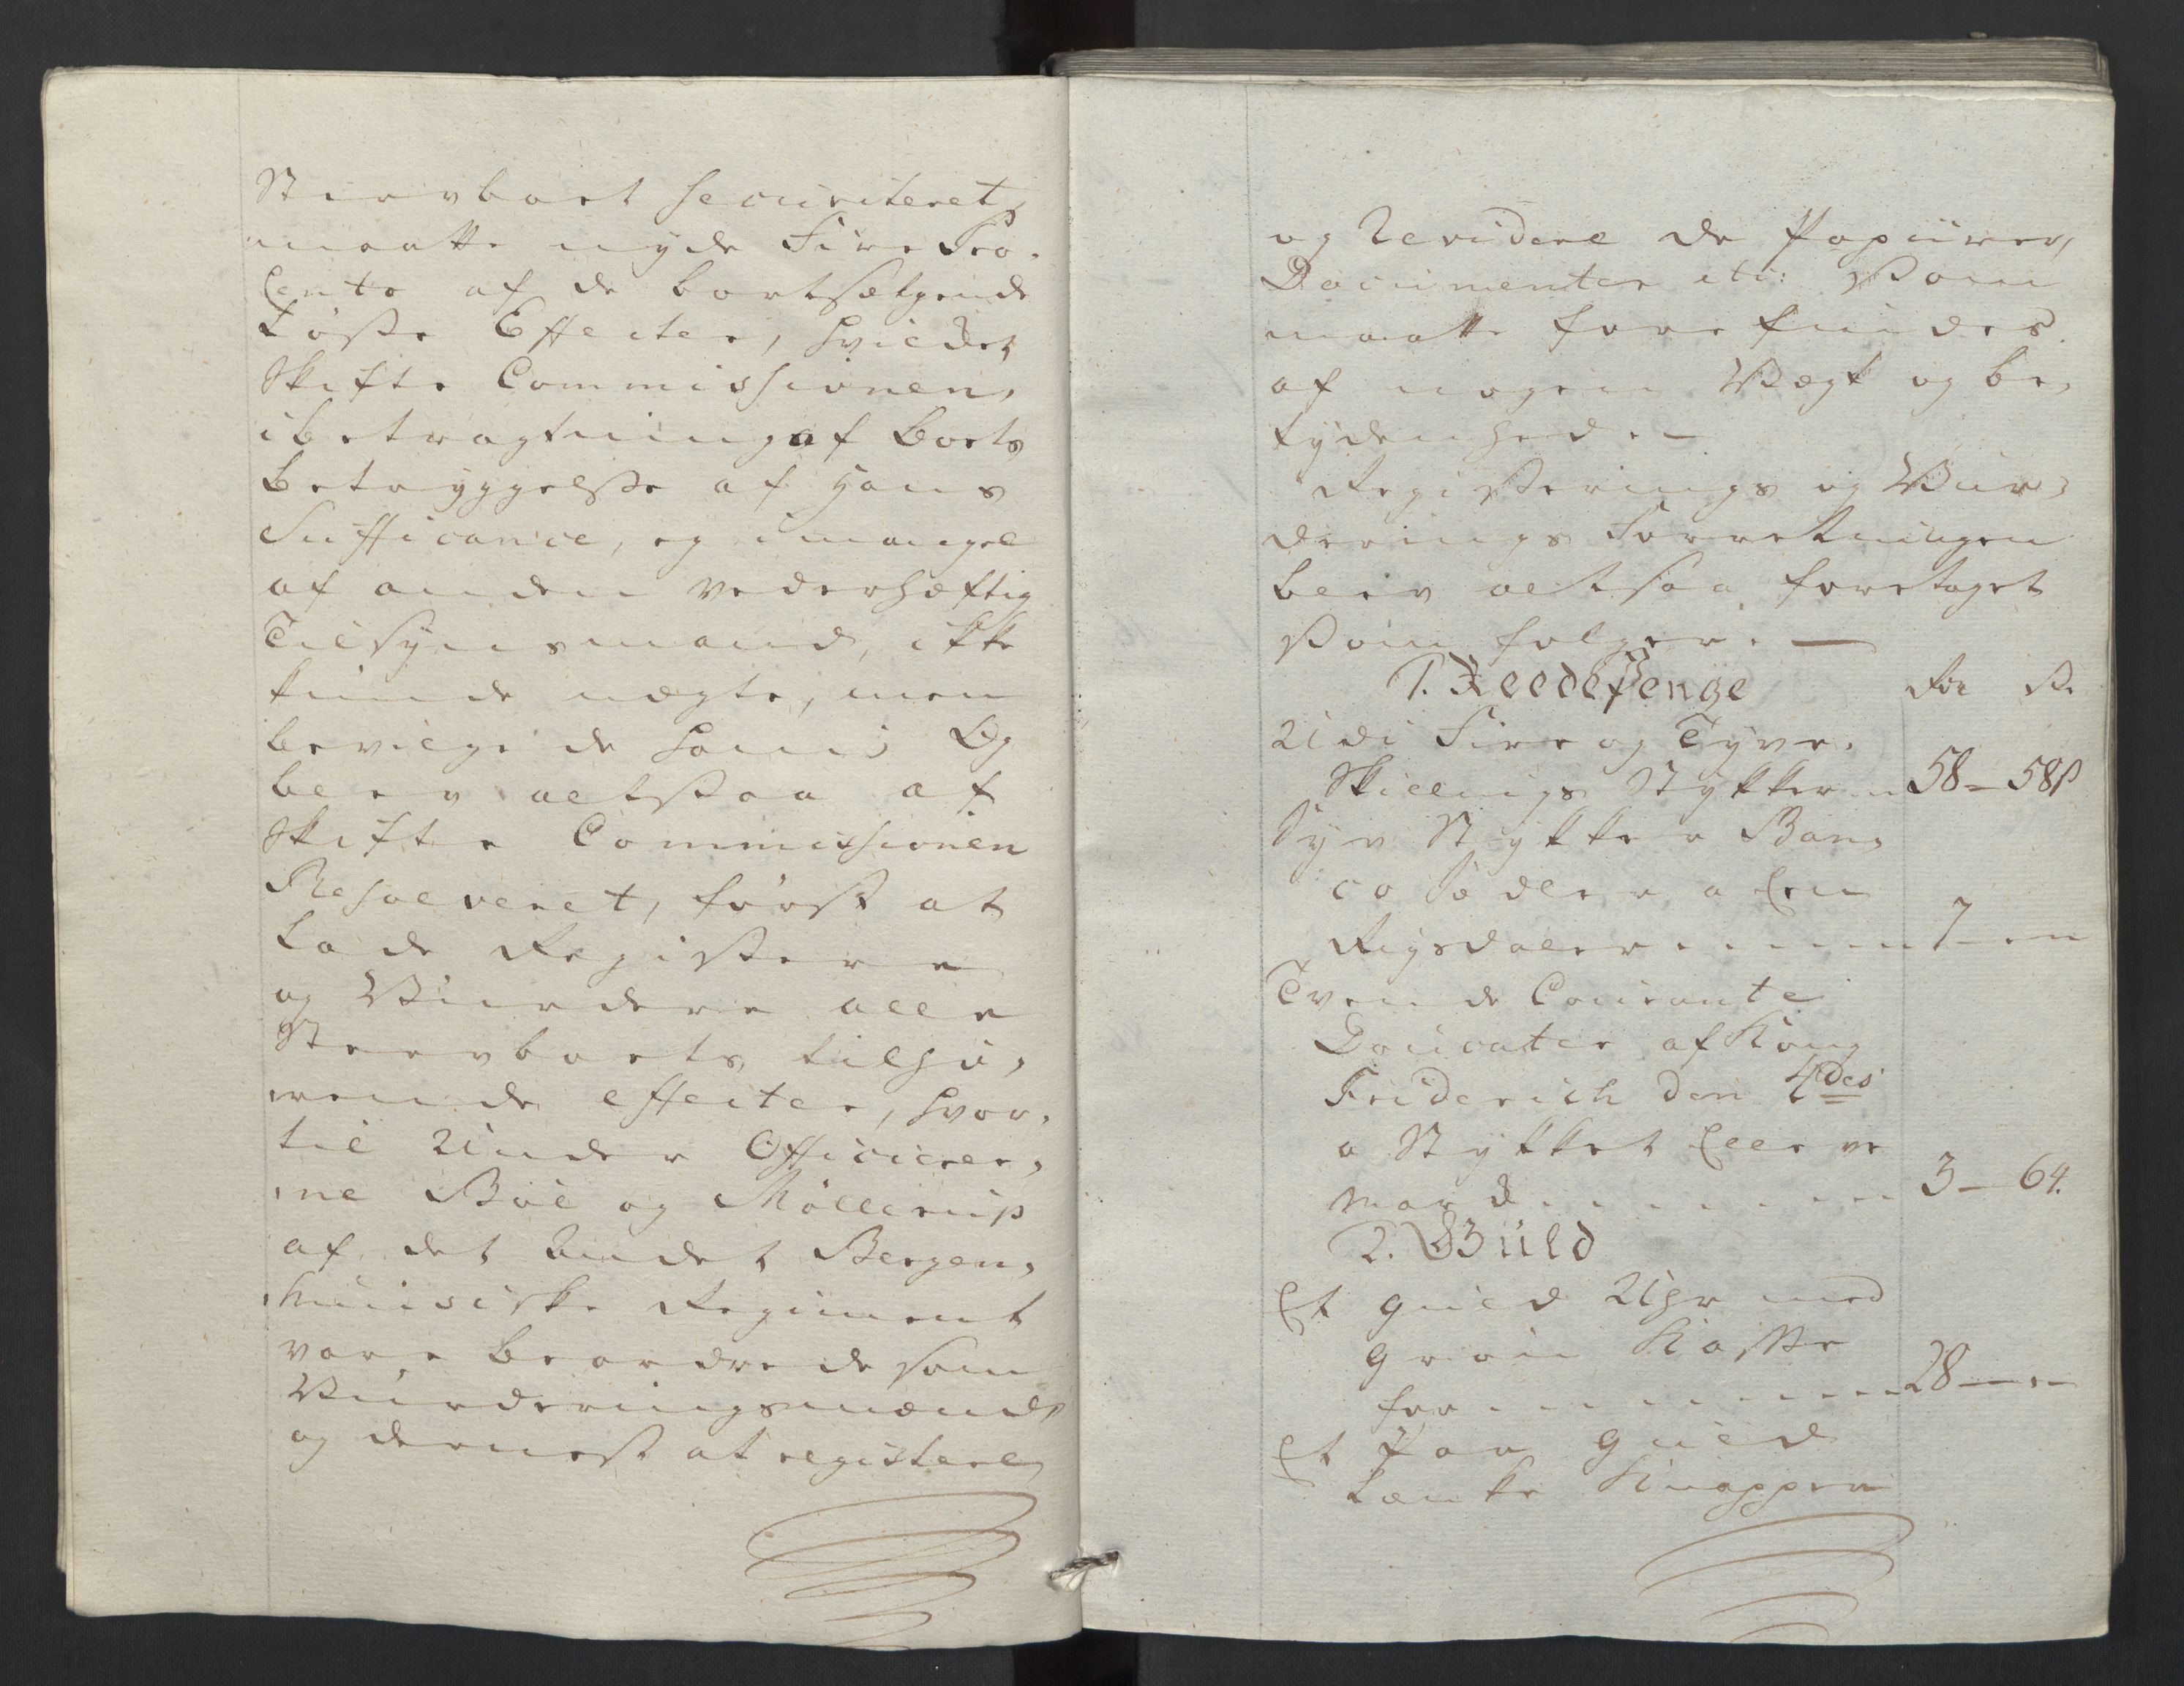 Stervboet securiteret,
maatte nyde Fire Pro-
Cento af de bortsælgende
Løsse Effecter, hvilket
Skifte Commissionen,
i betragtning af Boets
betryggelse af Hans
Sufficance, og i mangel
af anden vederhæftig
Tilsynsmand, ikke
kunde nægte, men
bevilgede ham; Og
blev altsaa af
Skifte Commissionen
Resolveret, først at
Lade Registere
og Vurdere alle
Stervboets tilhø-
rende effecter, hvor-
til Under Officierer-
ne Bøe og Møllerup
af det Andet Bergen-
huusiske Regiment
vare beordrede som
Vurderingsmænd,
og dernest at registere
og Revidere de Papiirer,
Documenter etc: som
maatte forefindes
af nogen Vægt og be-
tydenhed. —
Registerings og Vur-
derings Forretningen
blev altsaa foretaget
som følger. —
1. Reede Penge Rdr s.
Udi Fire og Tyve-
Skillings Stykker 58 — 58 s
Syv Stykker Ban-
co Sedler a Een
Rigsdaler 7 —
Tvende Courante
Ducater af Kong
Friderich den 4des
a Stykket Elleve
Mark 3 — 64.
2. Guld
Et Guld Uhr med
Grøn Kasse
for 28 —
Et Par Guld
Lænke Knapper